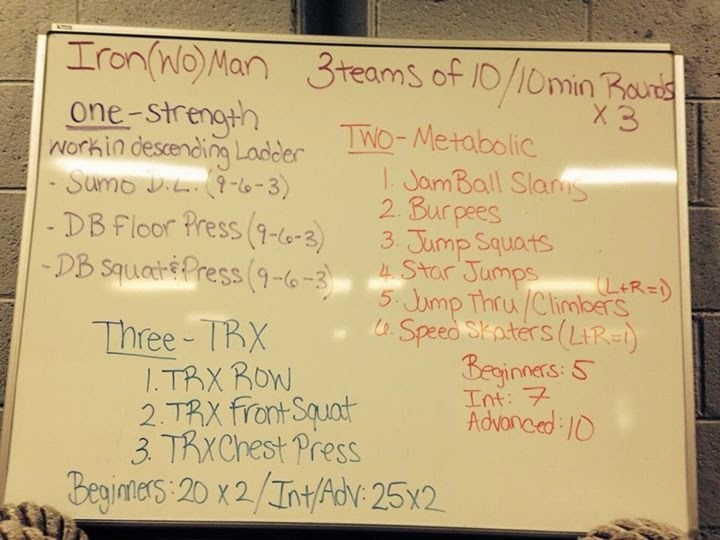 Iron(Wo)Man 3 teams of 10/10min Rounds
x 3
One-Strength
Work in descending Ladder
- Sumo D.L. (9-6-3)
- DB Floor Press (9-6-3)
- DB Squat & Press (9-6-3)
TWO- Metabolic
1. JamBall Slams
2. Burpees
3. Jump Squats
4. Star Jumps
5. Jump Thru/Climbers (L+R=1)
6. Speed Skaters (L+R=1)
Beginners: 5
Int: 7
Advanced: 10
Three- TRX
1. TRX Row
2. TRX Front Squat
3. TRX Chest Press
Beginners: 20 x 2 / Int/Adv: 25x2